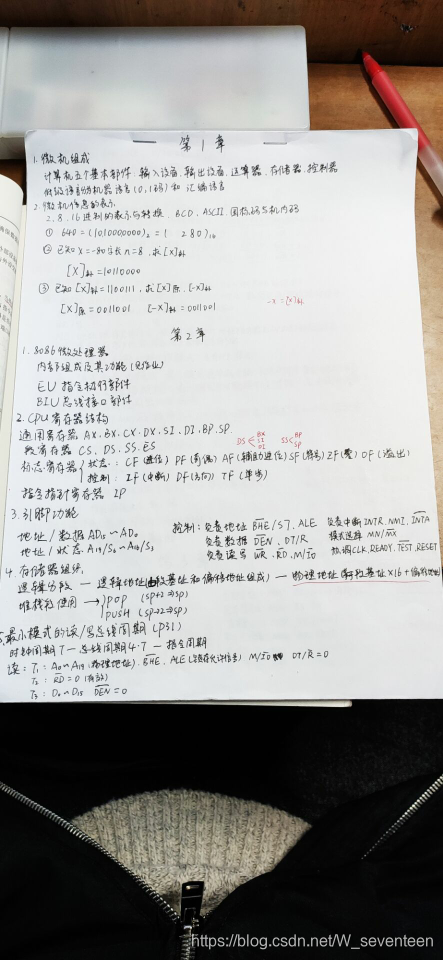 第1章
1.微机组成
计算机五个基本部件:输入设备、输出设备、运算器、存储器、控制器
低级语言分机器语言(0,1码)和 汇编语言
2.微机信息的表示
2、8、16进制的表示与转换、BCD、ASCII、国标码与机内码
① 640=(1010000000)₂=( 280)₁₆
② 已知X=-80字长n=8,求[X]补
[X]补=10110000
③ 已知[X]补=1100111,求[X]原、[-X]补
[X]原=0011001 [-X]补=0011001
-X=[X]补
第2章
1.8086微处理器
内部组成及其功能(见作业)
EU 指令执行部件
BIU 总线接口部件
2.CPU寄存器结构
通用寄存器 AX、BX、CX、DX、SI、DI、BP、SP
DS BX SI DI SS BP SP
段寄存器 CS、DS、SS、ES
标志寄存器 状态:CF(进位) PF(奇偶) AF(辅助进位) SF(符号) ZF(零) OF(溢出)
控制:IF(中断) DF(方向) TF(单步)
指令指针寄存器 IP
3.引脚功能
地址/数据 AD₁₅~AD₀
地址/状态 A₁₉/S₆~A₁₆/S₃
控制:负责地址 BHE/S7、ALE 负责中断 INTR、NMI、INTA
负责数据 DEN、DT/R 模式选择 MN/MX
负责读写 WR、RD、M/IO 协调CLK、READY、TEST、RESET
4.存储器组织
逻辑分段 — 逻辑地址(由段基址和偏移地址组成) — 物理地址=段基址×16+偏移地址
堆栈的使用 → POP (SP+2⇒SP)
PUSH (SP-2⇒SP)
5.最小模式的读/写总线周期(P31)
时钟周期T—总线周期4·T — 指令周期
读:T₁:A₀~A₁₉(物理地址)、BHE、ALE(锁存允许信号) M/IO DT/R=0
T₂:RD=0(有效)
T₃:D₀~D₁₅ DEN=0
https://blog.csdn.net/W_seventeen